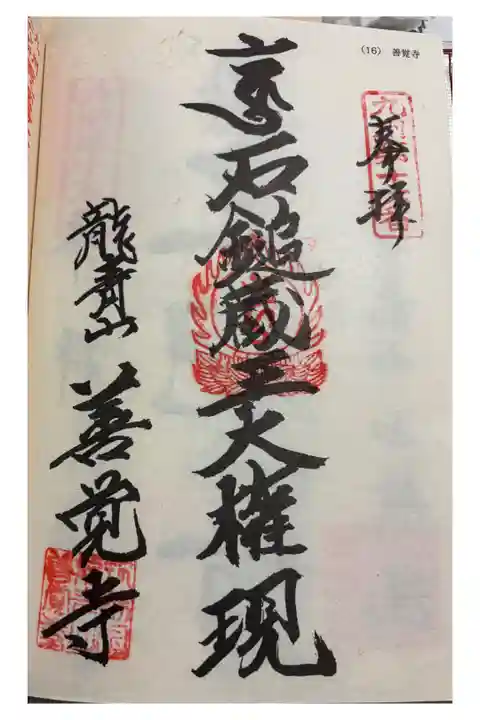 (16) 善覚寺
奉拝
石鎚蔵王大権現
龍青山 善覚寺